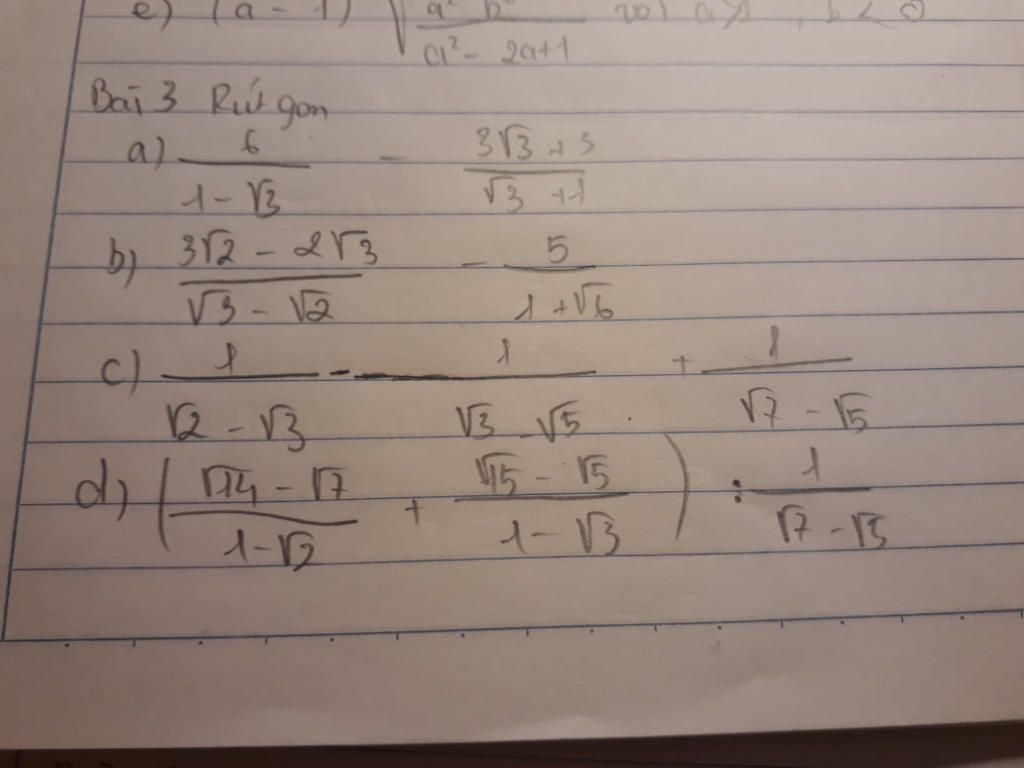 e) (a - 1) √(a² b / (a² - 2a+1)) với a>1, b < 0
Bài 3 Rút gọn
a) 6 / (1 - √3) - (3√3 + 3) / (√3 + 1)
b) (3√2 - 2√3) / (√3 - √2) - 5 / (1 + √6)
c) 1 / (√2 - √3) - 1 / (√3 - √5) + 1 / (√7 - √5)
d) ((√14 - √7) / (1 - √2) + (√15 - √5) / (1 - √3)) : 1 / (√7 - √5)